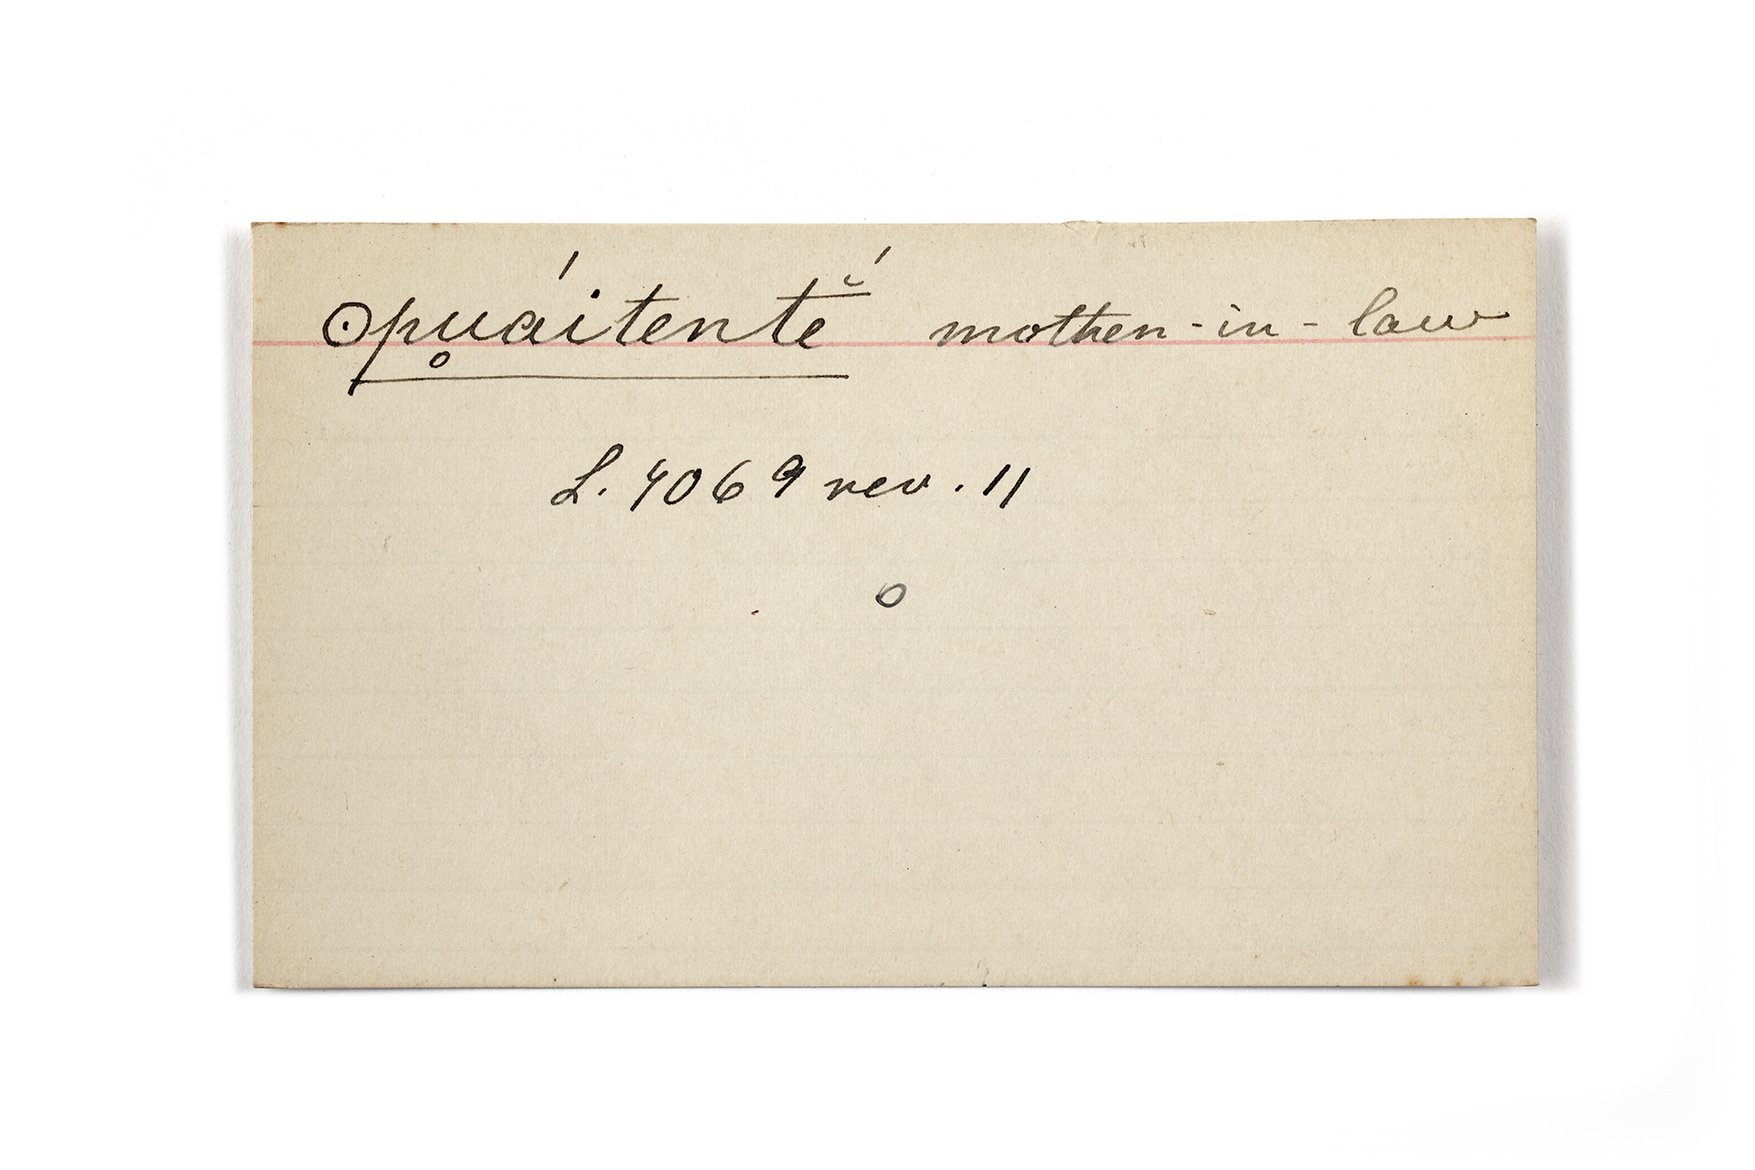 opu̥áitentĕ́ mother-in-law
L. 4069 rev. 11
o